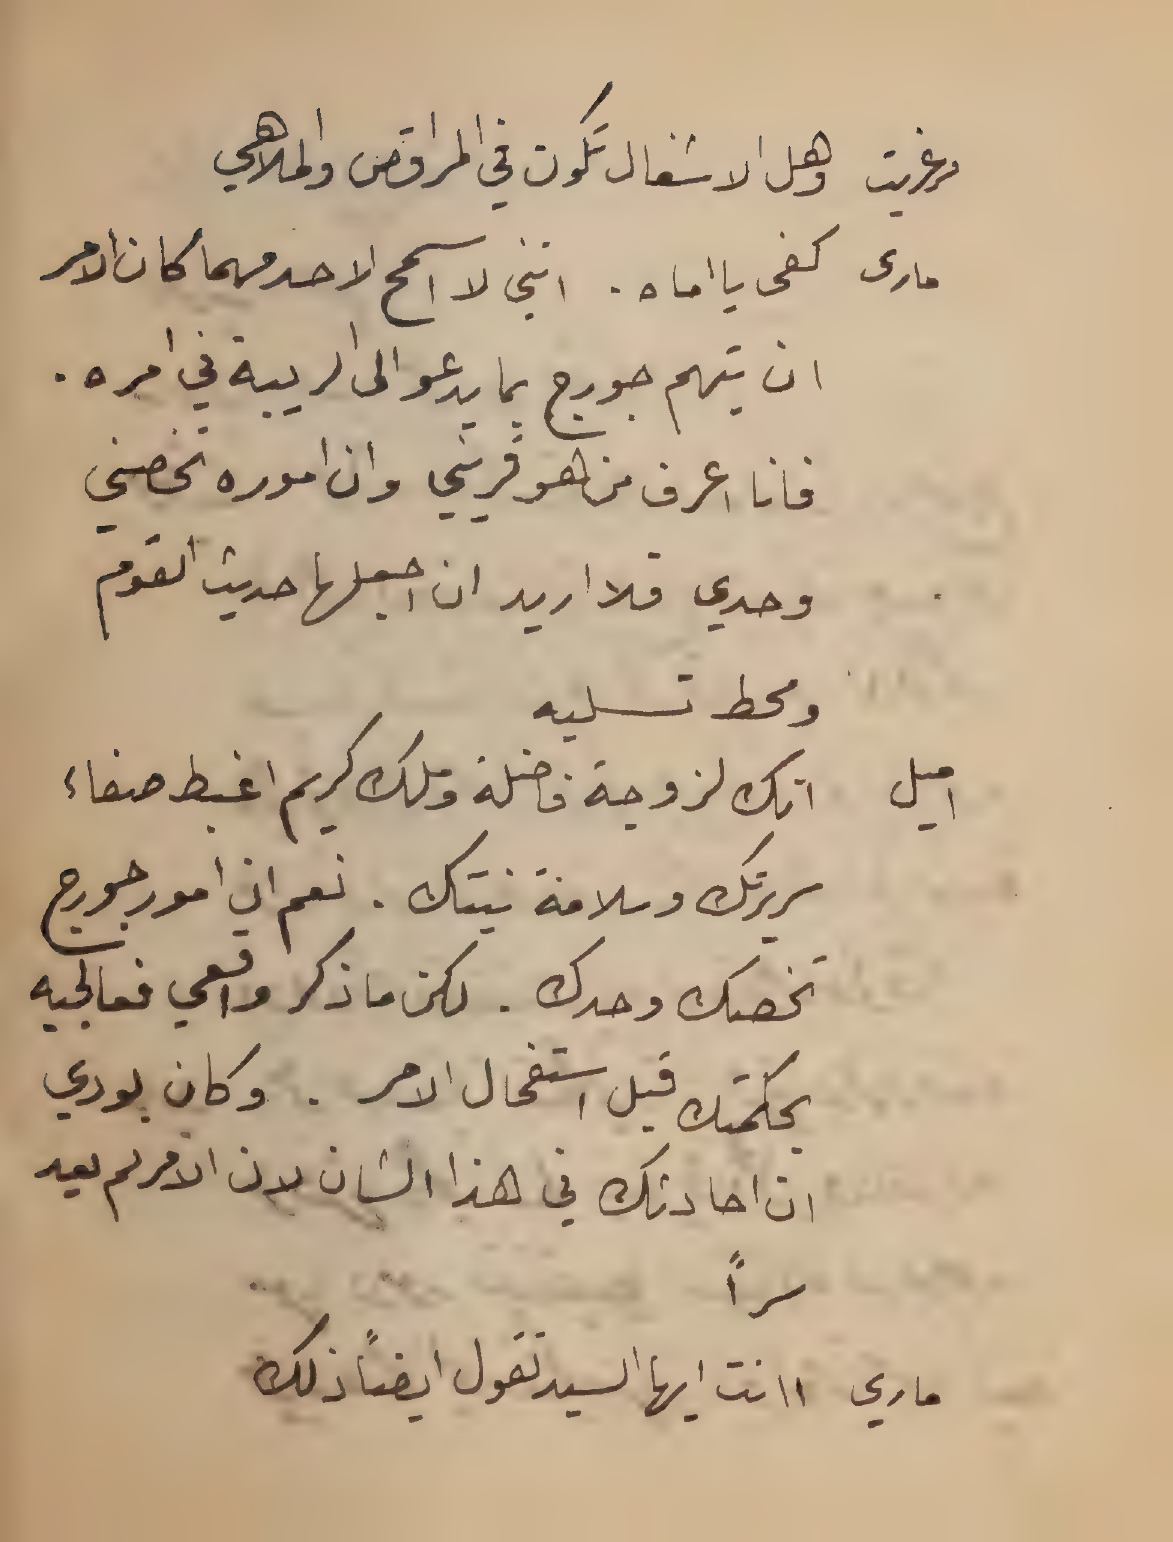 مرغريت وهل الاشغال تكون في المراقص والملاهي
مارى كفى يا اماه . انني لا اسمح لاحد مهما كان الامر
ان يتهم جورج بما يدعو الى الريبة في امره .
فانا اعرف من هو قريني وان اموره تخصني
وحدي فلا اريد ان اجعلها حديث القوم
ومحط تسليه
اميل انك لزوجة فاضلة وملك كريم اغبط صفاء
سريرتك وسلامة نيتك . نعم ان امور جورج
تخصك وحدك . لكن ما ذكر واقعي فعالجيه
بحكمتك قبل استفحال الامر . وكان بودي
ان احادثك في هذا الشان لان الامر لم يعد
سراً
ماري اانت ايها السيد تقول ايضاً ذلك